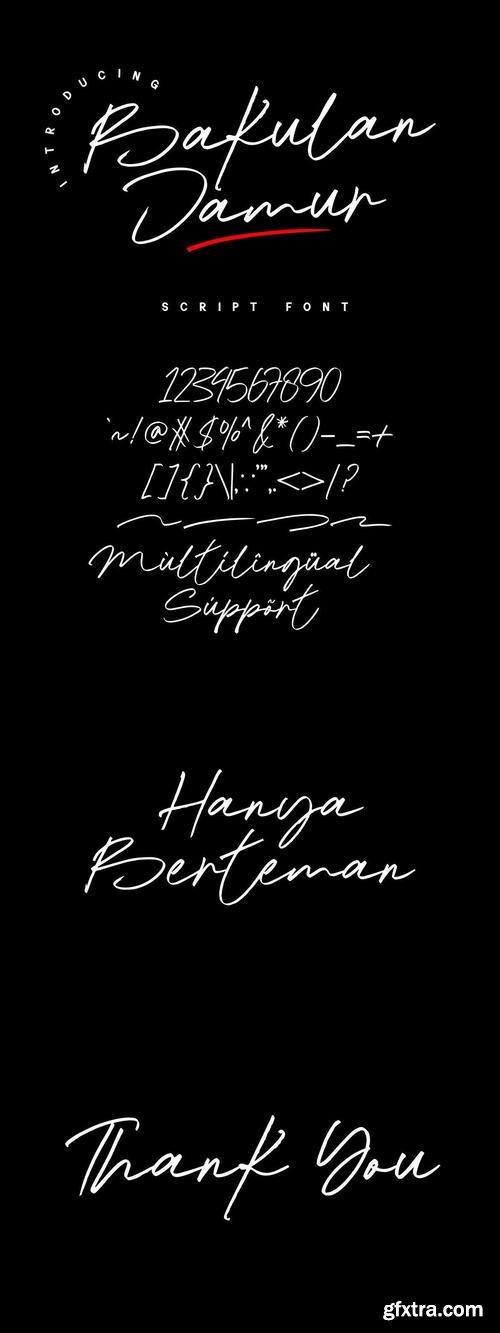 INTRODUCING
Bakulan
Jamur
SCRIPT FONT
1234567890
`~!@#$%^&*()-_=+
[]{}\|;:'",.<>/?
Mùltilîngüal
Súppõrt
Hanya
Berteman
Thank You
gfxtra.com